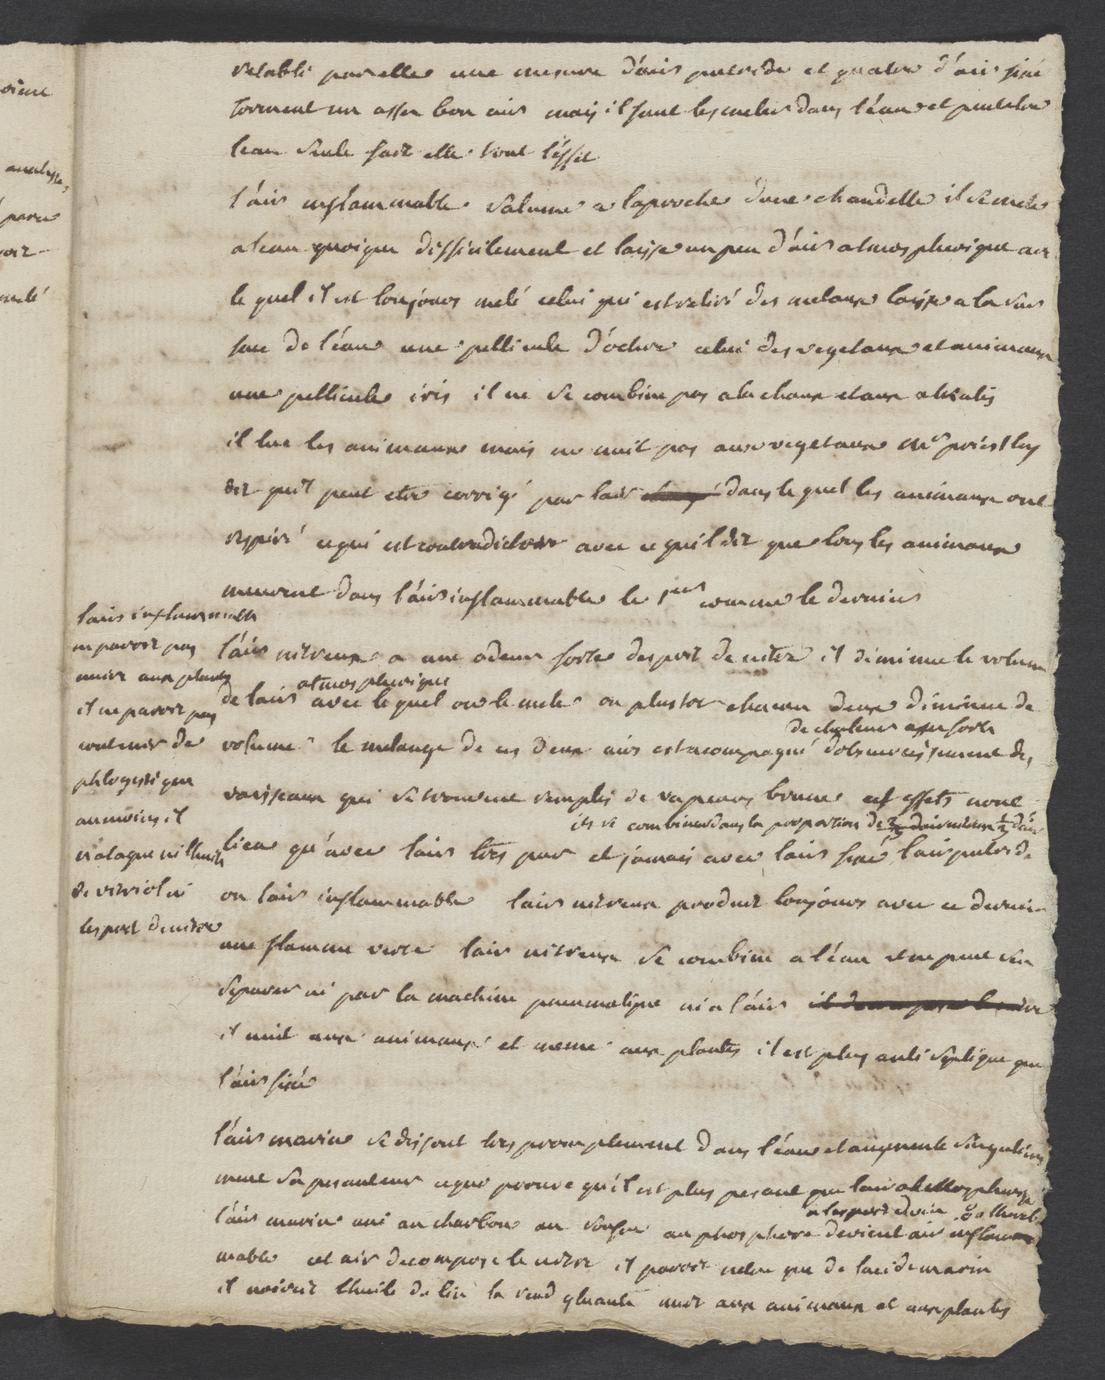 retabli par elle une mesure d'air putride et quatre d'air fixé
forment un assez bon air mais il faut les meler dans l'éau et peutetre
leau seule fait elle tout l'effet
l'air inflammable salume a laproche dune chandelle il se mele
a leau quoique difficilement et laisse un peu d'air atmospherique avec
le quel il est toujours melé celui qui est retiré des metaux laisse a la sur
face de l'éau une pellicule d'ochre celui des vegetaux et animaux
une pellicule iris il ne se combine pas a la chaux et aux alkalis
il tue les animaux mais ne nuit pas aux vegetaux Mr priestley
dit quil peut etre corrigé par lair dans le quel les animaux ont
respiré ce qui est contradictoire avec ce quil dit que tous les animaux
meurent dans l'air inflammable le 1er comme le dernier
lair inflammable
ne paroit pas
nuire aux plantes
il ne paroit pas
contenir de
phlogistique
au moins il
n'ataque ni lhuile
de vitriol ni
lesprit de nitre
l'air nitreux a une odeur forte desprit de nitre il diminue le volume
de lair atmospherique avec le quel on le mele ou plustot chacun deux diminue de
volume le melange de ces deux airs est acompagné de chaleur assez forte dobscurcissement des
vaisseaux qui se trouvent remplis de vapeurs brunes ces effets nont
ils se combinent dans la proportion de
lieu qu'avec lair tres pur et jamais avec lair fixé lair putride
ou lair inflammable lair nitreux produit toujours avec ce dernier
une flamme verte lair nitreux se combine a l'éau et ne peut sen
separer ni par la machine pneumatique ni a l'air
il nuit aux animaux et meme aux plantes il est plus anti septique que
l'air fixé
l'air marin se dissout tres promptement dans l'éau et augmente singuliere
ment sa pesanteur ce qui prouve qu'il est plus pesant que lair atmospherique
l'air marin uni au charbon au soufre au phosphore a lesprit de vin devient air inflam
mable cet air decompose le nitre il paroit netre que de lacide marin
il noircit lhuile de lin la rend gluante nuit aux animaux et aux plantes